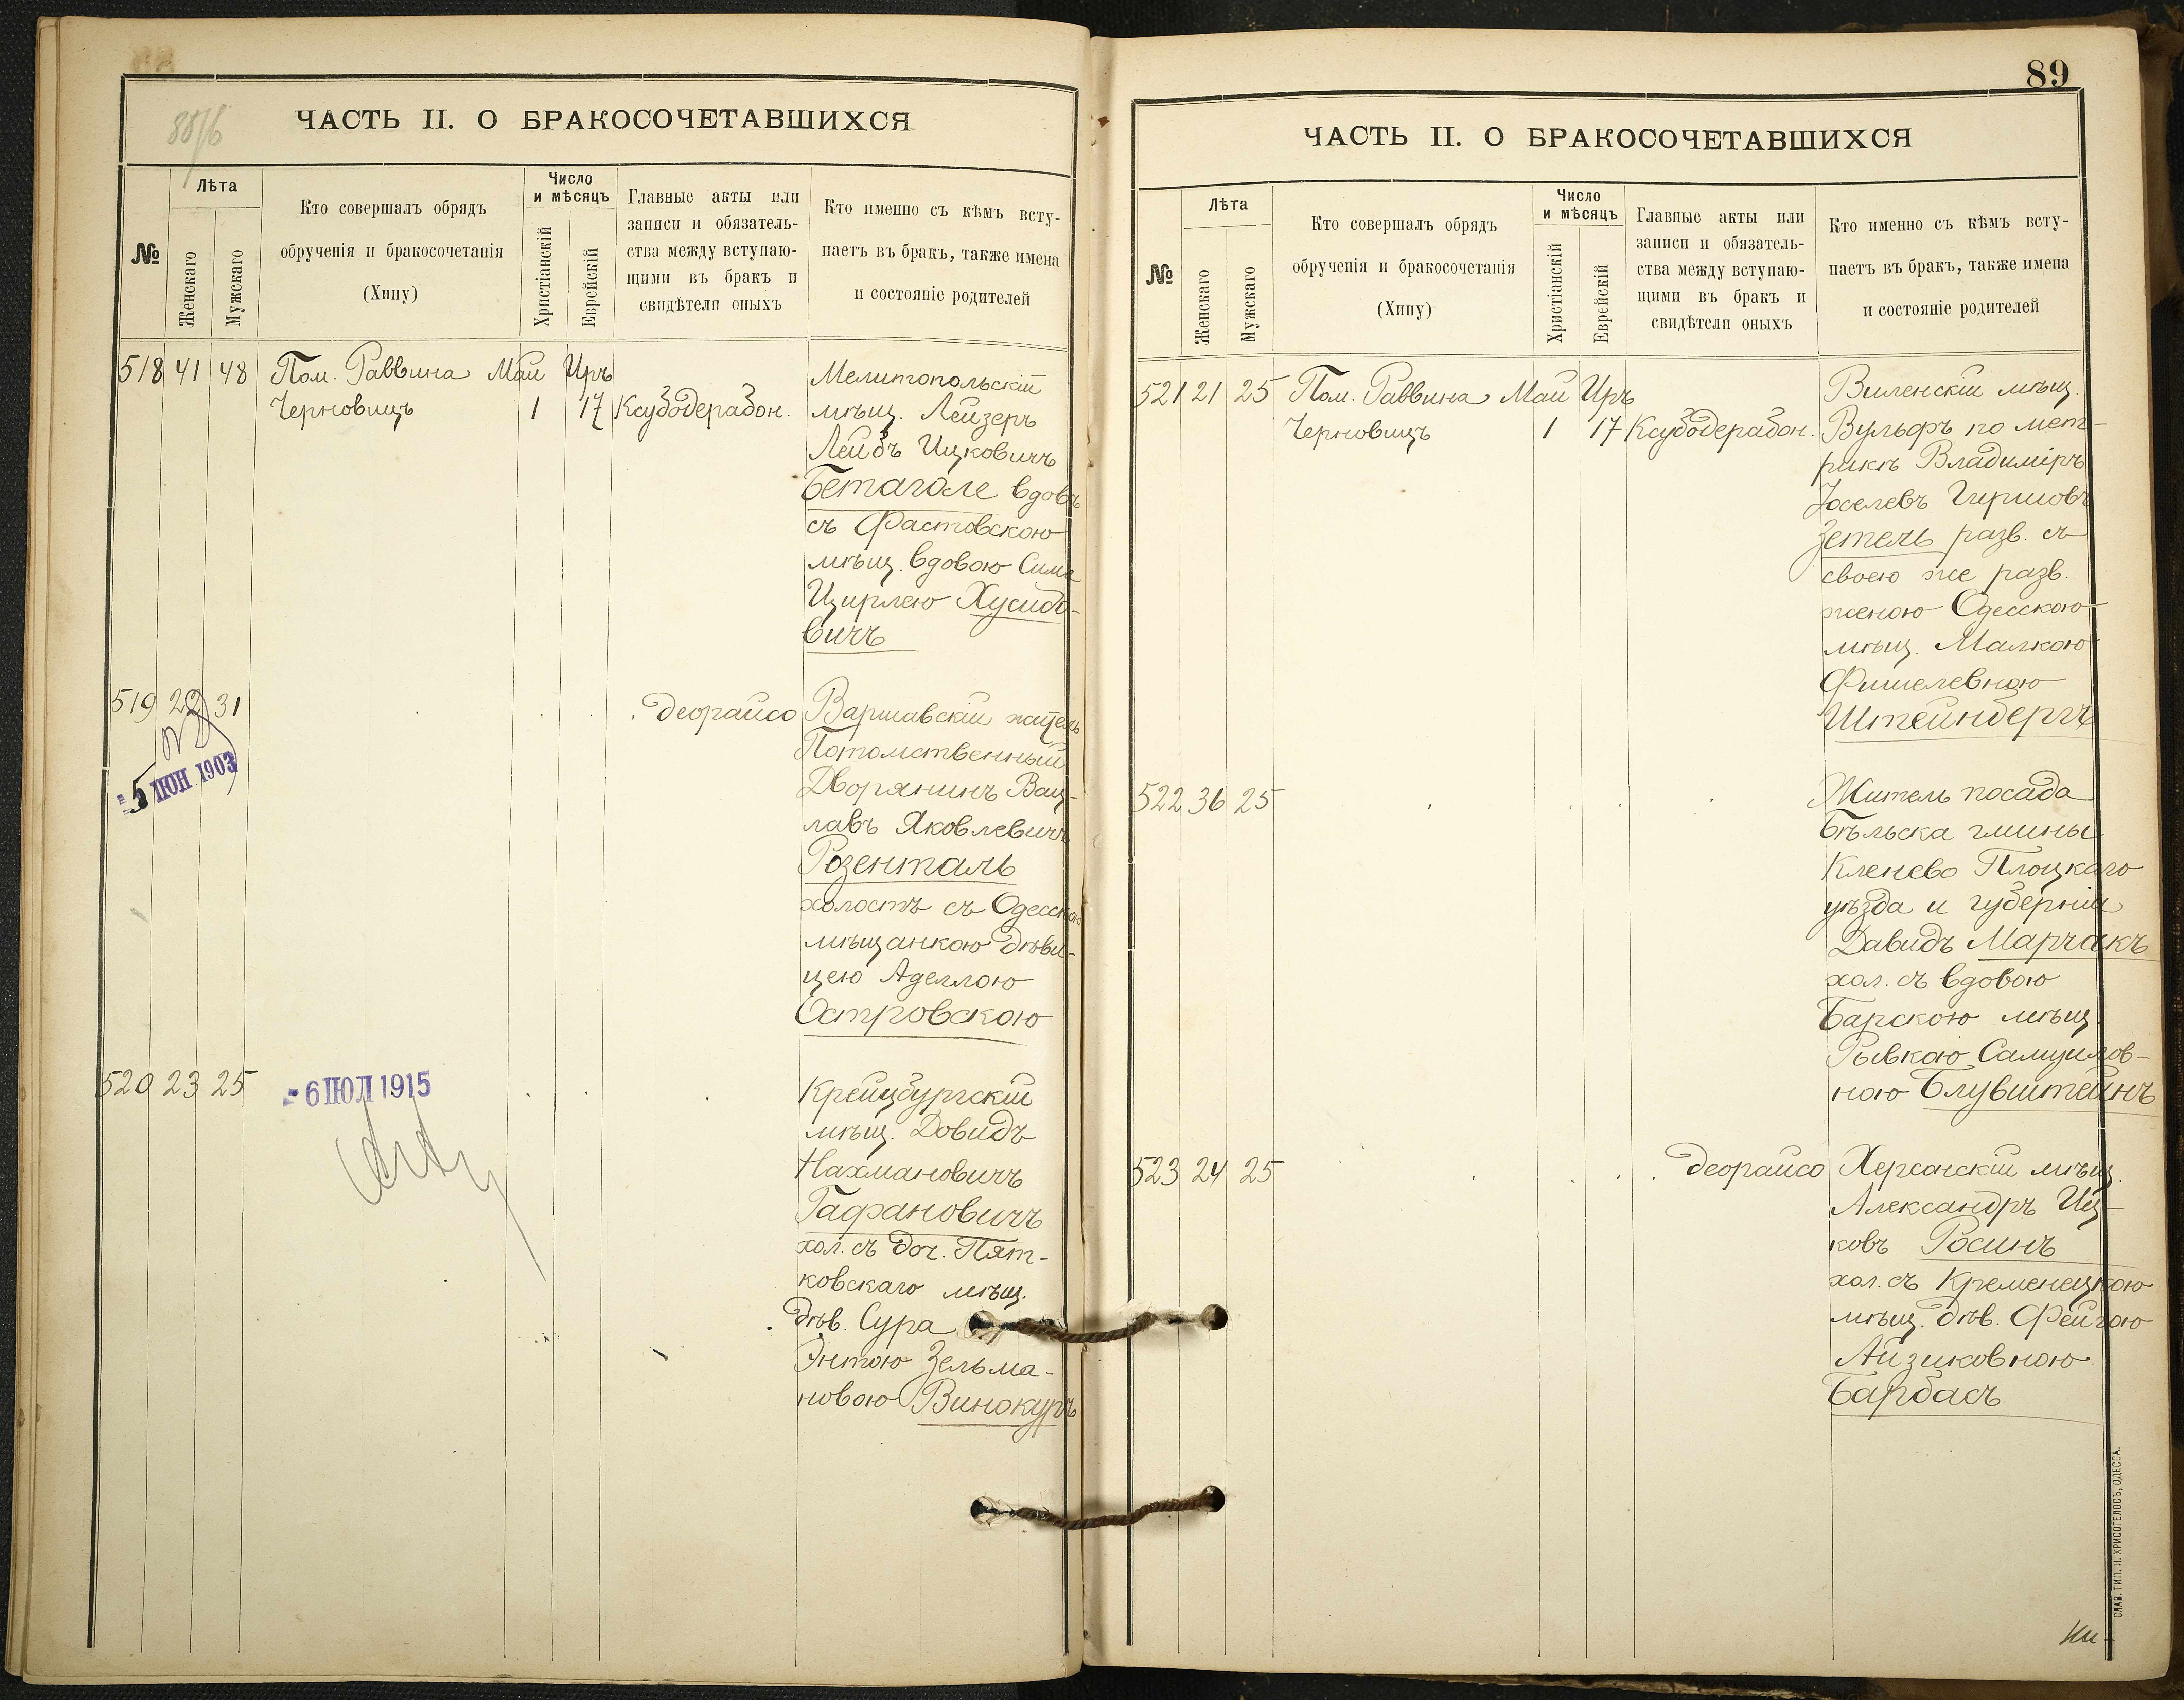 88/б
ЧАСТЬ II. О БРАКОСОЧЕТАВШИХСЯ
№
Лѣта
Женскаго
Мужскаго
Кто совершалъ обрядъ
обрученія и бракосочетанія
(Хипу)
Число
и мѣсяцъ
Христіанскій
Еврейскій
Главные акты или
записи и обязатель-
ства между вступаю-
щими въ бракъ и
свидѣтели оныхъ
Кто именно съ кѣмъ всту-
паетъ въ бракъ, также имена
и состояніе родителей
518 41 48 Пом. Раввина Май Иръ
Черновицъ 1 17 Ксубодерабон.
Мелитопольскій
мѣщ. Лейзеръ
Лейбъ Ицковичъ
Бетаголе вдовъ
съ Фастовскою
мѣщ. вдовою Сима
Цирлею Хусидо-
вичъ
519 22 31 деорайсо
5 ІЮН 1903
Варшавскій житель
Потомственный
Дворянинъ Вац-
лавъ Яковлевичъ
Розенталь
холостъ съ Одесскою
мѣщанкою дѣви-
цею Аделлою
Островскою
520 23 25
- 6 ІЮЛ 1915
Крейцбургскій
мѣщ. Довидъ
Нахмановичъ
Гафановичъ
хол. съ доч. Пят-
ковскаго мѣщ.
дѣв. Сура
Энтою Зельма-
новою Винокуръ
89
ЧАСТЬ II. О БРАКОСОЧЕТАВШИХСЯ
№
Лѣта
Женскаго
Мужскаго
Кто совершалъ обрядъ
обрученія и бракосочетанія
(Хипу)
Число
и мѣсяцъ
Христіанскій
Еврейскій
Главные акты или
записи и обязатель-
ства между вступаю-
щими въ бракъ и
свидѣтели оныхъ
Кто именно съ кѣмъ всту-
паетъ въ бракъ, также имена
и состояніе родителей
521 21 25 Пом. Раввина Май Иръ
Черновицъ 1 17 Ксубодерабон.
Виленскій мѣщ.
Вульфъ по мет-
рикѣ Владиміръ
Іоселевъ Гершовъ
Зетель разв. съ
своею же разв.
женою Одесскою
мѣщ. Малкою
Фишелевною
Штейнбергъ
522 36 25
Житель посада
Бѣльска гмины
Кленево Плоцкаго
уѣзда и губерніи
Давидъ Марчакъ
хол. съ вдовою
Барскою мѣщ.
Рывкою Самуилов-
ною Блувштейнъ
523 24 25 деорайсо
Херсонскій мѣщ.
Александръ Иц-
ковъ Росинъ
хол. съ Кременецкою
мѣщ. дѣв. Фейгою
Айзиковною
Барбасъ
СЛАВ. ТИП. Н. ХРИСОГЕЛОСЪ, ОДЕССА.